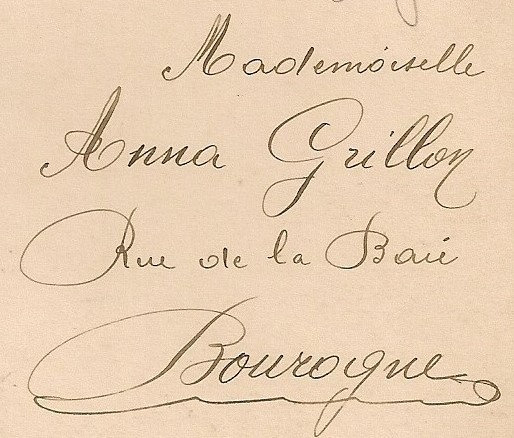 Mademoiselle
Anna Grillon
Rue de la Baie
Bourogne